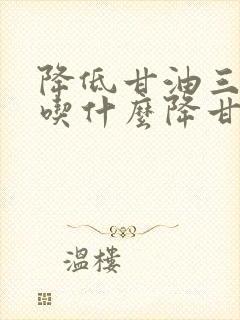 降低甘油三
喫什麼降甘
溫樓